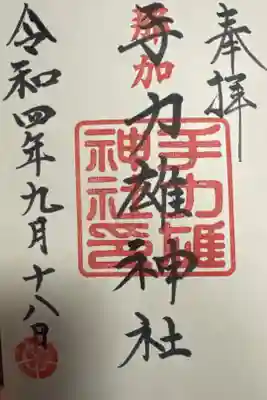 奉拝
那加
手力雄神社
手力雄
神社印
令和四年九月十八日